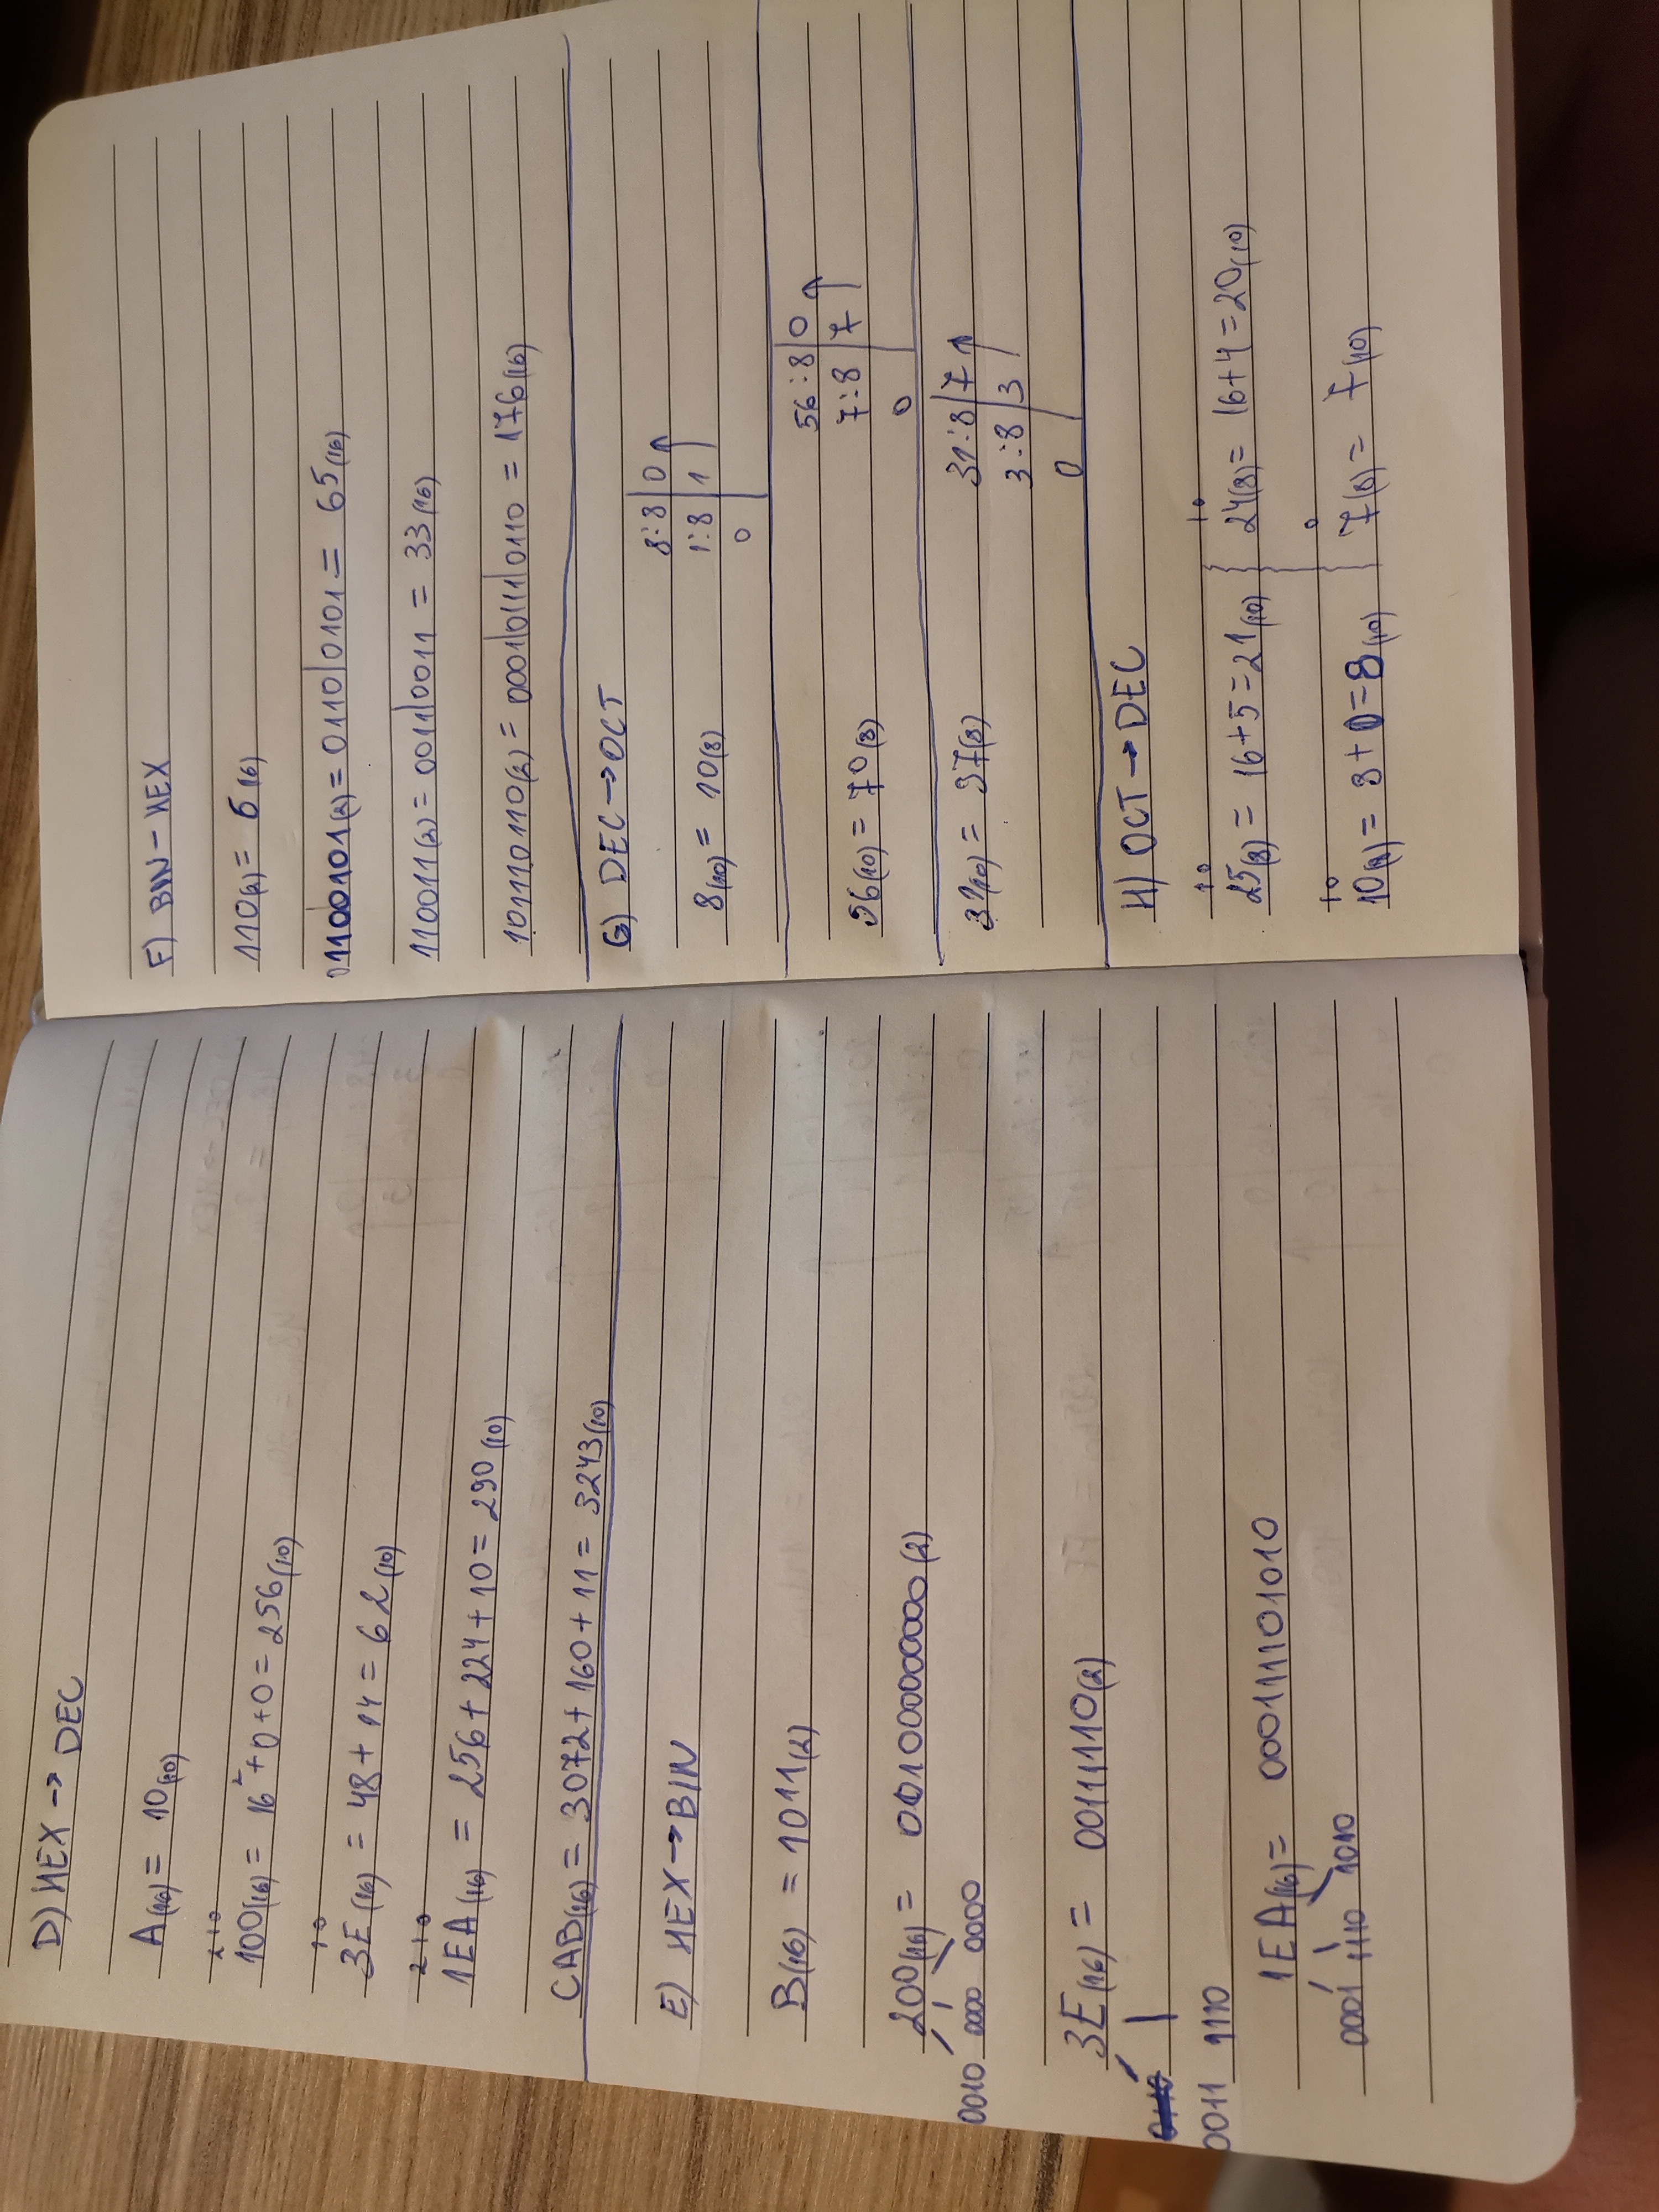 D) HEX → DEC
A(16) = 10(10)
2 1 0
100(16) = 16² + 0 + 0 = 256(10)
1 0
3E(16) = 48 + 14 = 62(10)
2 1 0
1EA(16) = 256 + 224 + 10 = 290(10)
CAB(16) = 3072 + 160 + 11 = 3243(10)
E) HEX → BIN
B(16) = 1011(2)
200(16) = 001000000000(2)
0010 0000 0000
3E(16) = 00111110(2)
0011 1110
1EA(16) = 000111101010
0001 1110 1010
F) BIN - HEX
110(2) = 6(16)
1100101(2) = 0110|0101 = 65(16)
110011(2) = 0011|0011 = 33(16)
101110110(2) = 0001|0111|0110 = 176(16)
G) DEC → OCT
8:8|0
8(10) = 10(8) 1:8|1
0
56:8|0
56(10) = 70(8) 7:8|7
0
31:8|7
31(10) = 37(8) 3:8|3
0
H) OCT → DEC
1 0 1 0
25(8) = 16+5=21(10) } 24(8) = 16+4=20(10)
1 0 0
10(8) = 8+0=8(10) } 7(8) = 7(10)